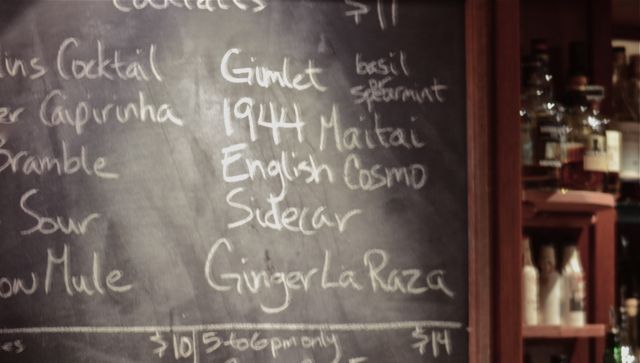 Cocktails $11
ins Cocktail Gimlet basil or spearmint
er Capirinha 1944 Maitai
Bramble English Cosmo
Sour Sidecar
ow Mule Ginger La Raza
es $10 5-to6pm only $14